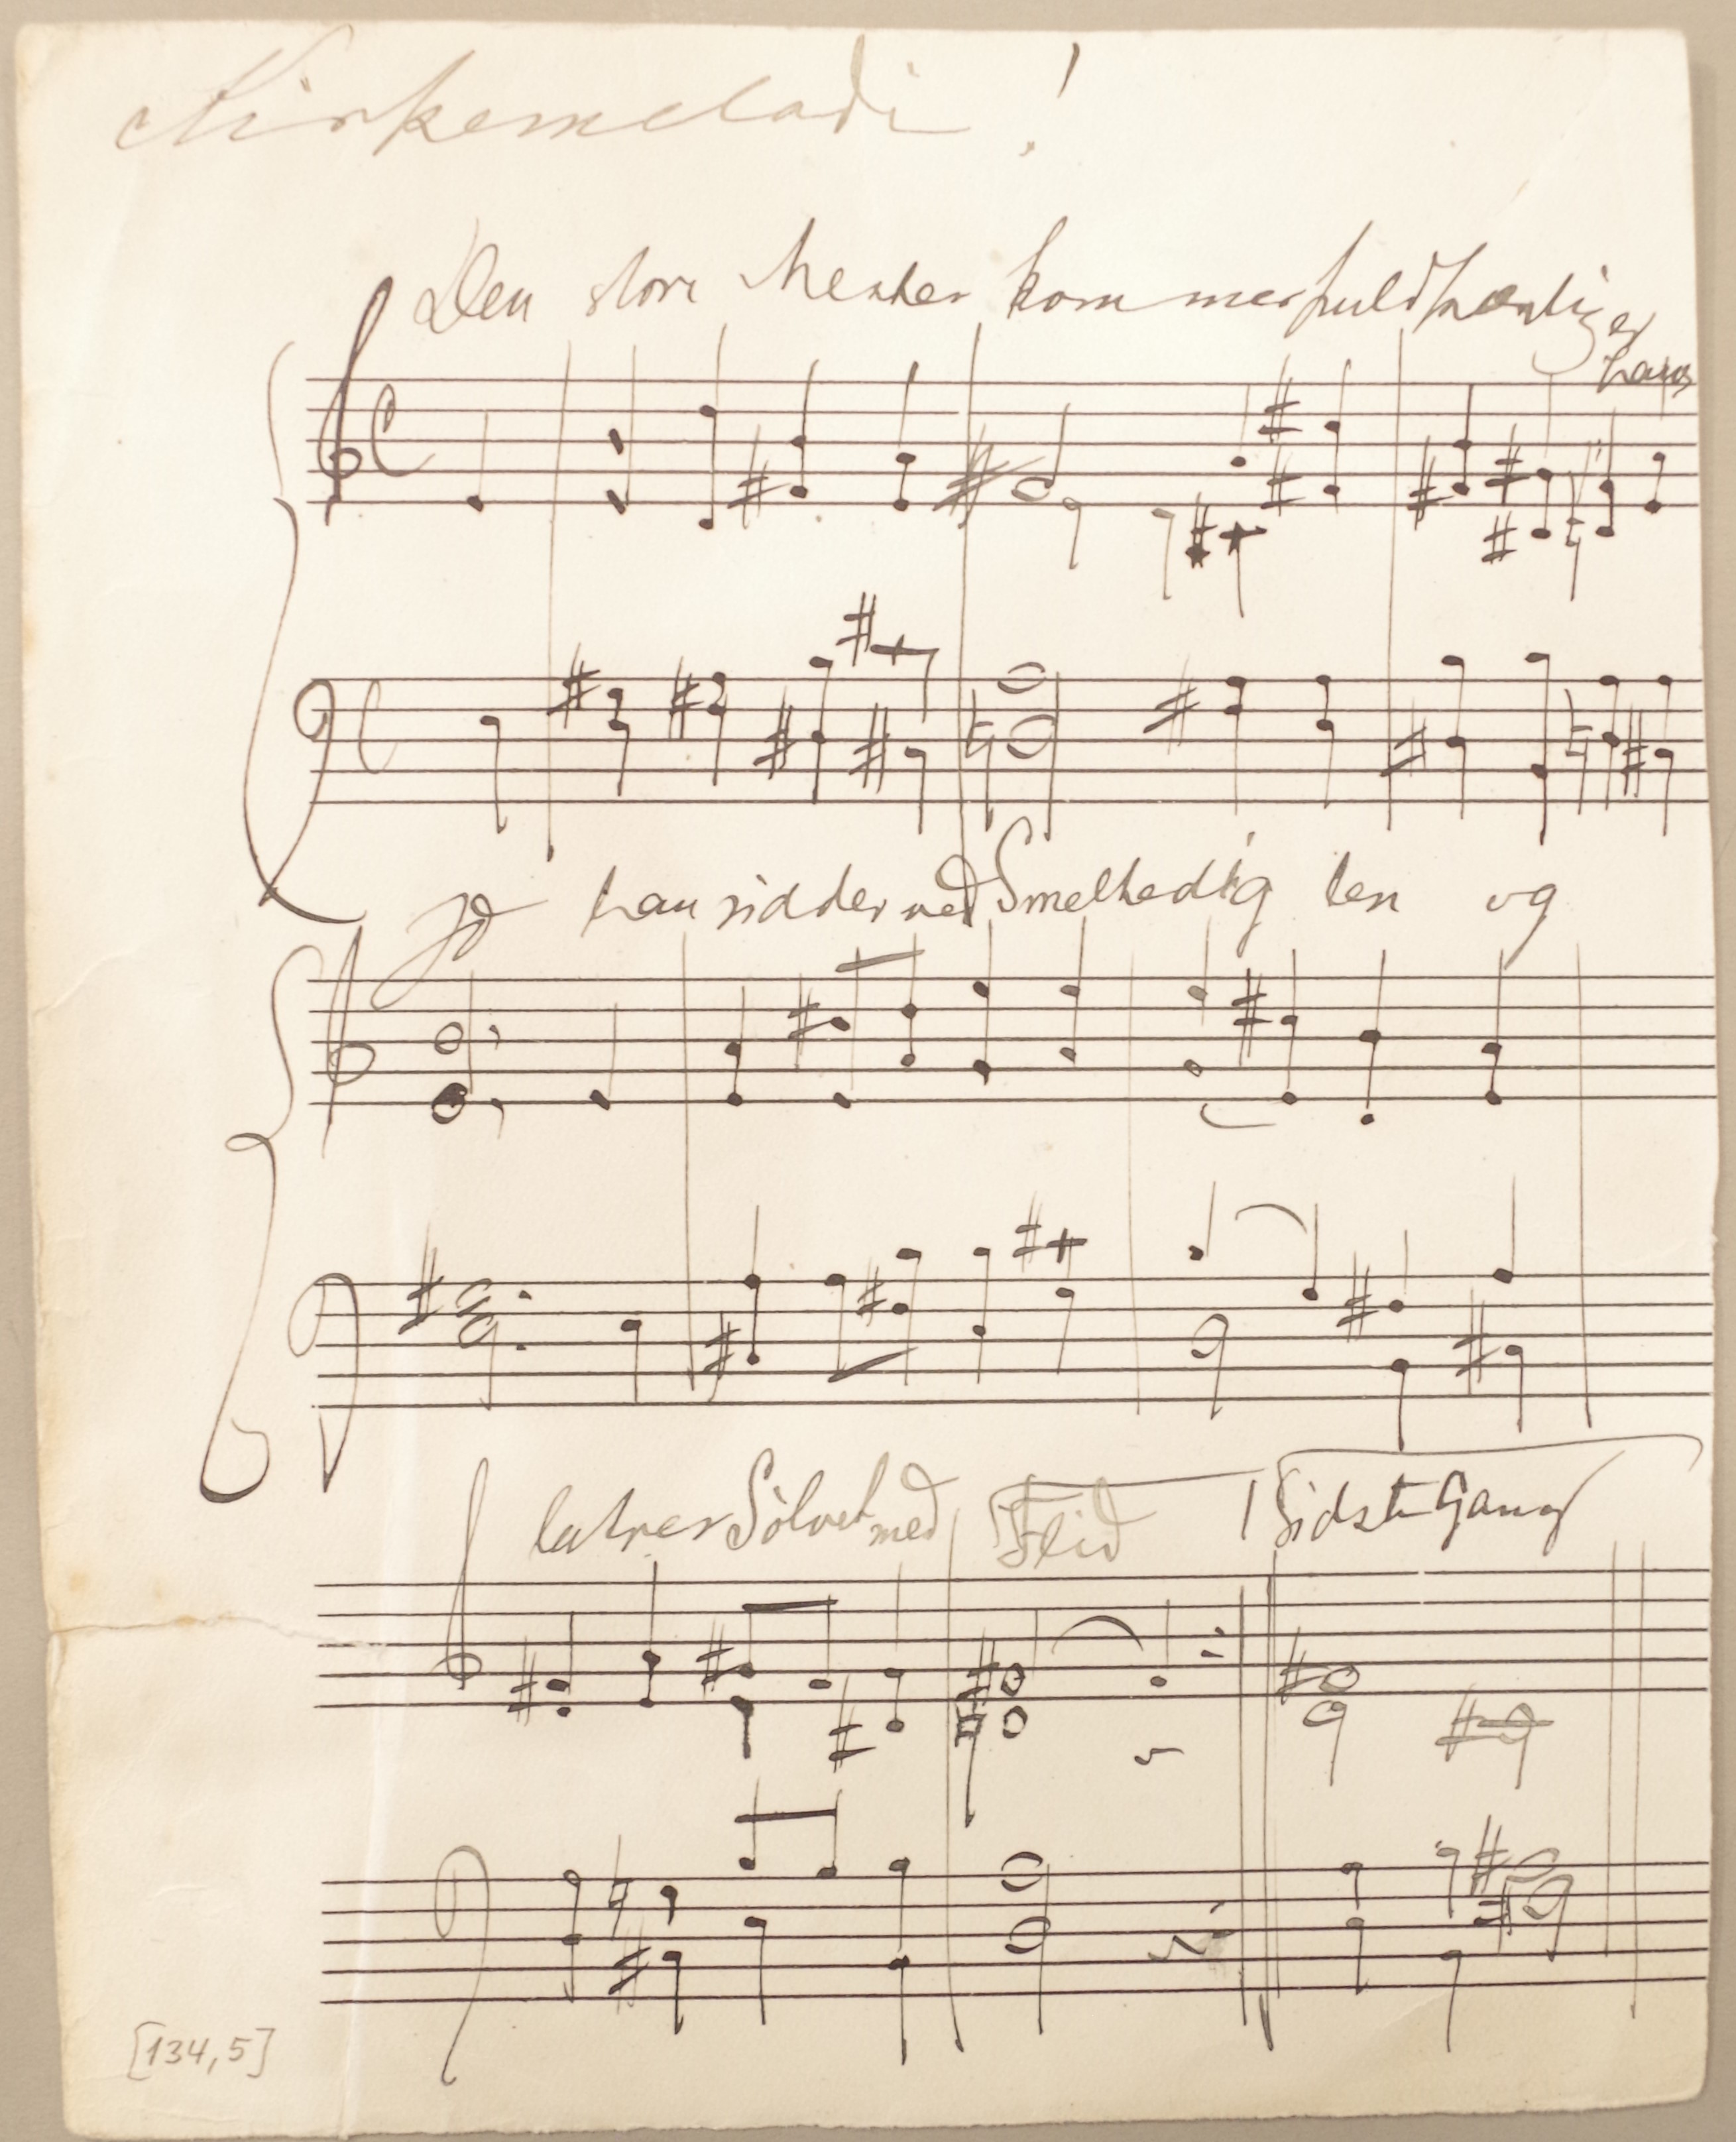 Kirkemelodi!
Den store Mester kommer fuldfærdig er
hans
Id han sidder ved Smeltediglen og
lutrer Sölvet med Flid Sidste Gang
[134,5]